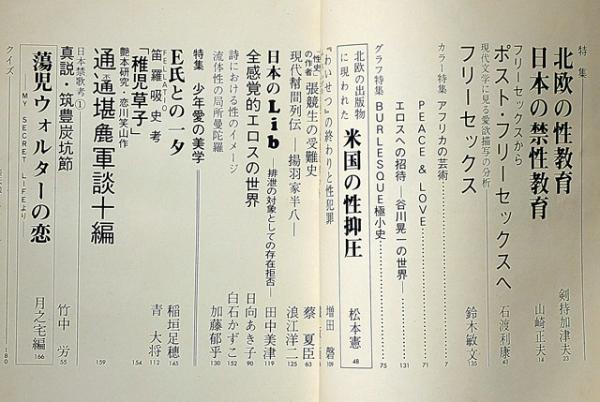 特集
北欧の性教育 剣持加津夫 23
日本の禁性教育 山崎正夫 14
フリーセックスから
ポスト・フリーセックスへ 石渡利康 43
現代文学に見る愛欲描写の分析
フリーセックス 鈴木敏文 135
カラー特集 アフリカの芸術 7
PEACE & LOVE 71
エロスへの招待―谷川晃一の世界― 131
グラフ特集 BURLESQUE極小史 75
北欧の出版物に現われた 米国の性抑圧 松本憲 48
『わいせつ』の終わりと性犯罪 増田磐 109
『性史』の作者 張競生の受難史 蔡夏臣 63
現代幇間列伝―揚羽家半八― 浪江洋二 125
日本のLib―排泄の対象としての存在拒否― 田中美津 119
全感覚的エロスの世界 日向あき子 90
詩における性のイメージ 白石かずこ 152
流体性の局所曼陀羅 加藤郁乎 130
特集 少年愛の美学
E氏との一夕 稲垣足穂 165
FELLATIO
笛羅吸史考 青大将 112
「稚児草子」 154
艶本研究・恋川笑山作
通通堪麁軍談十編 159
日本禁歌考①
真説・筑豊炭坑節 竹中労 55
蕩児ウォルターの恋 月之宅編 166
―MY SECRET LIFEより―
クイズ 180